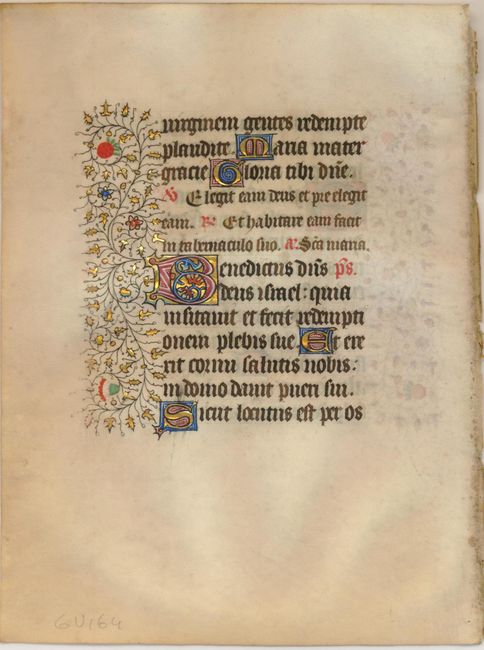 virginem gentes redempte
plaudite. Maria mater
gracie Gloria tibi dñe.
℣ Elegit eam deus et pre elegit
eam. ℟ Et habitare eam facit
in tabernaculo suo. a. Sca maria.
Benedictus dñs ps.
deus israel: quia
visitauit et fecit redempti
onem plebis sue. Et ere
xit cornu salutis nobis:
in domo dauit pueri sui.
Sicut locutus est per os
GV164